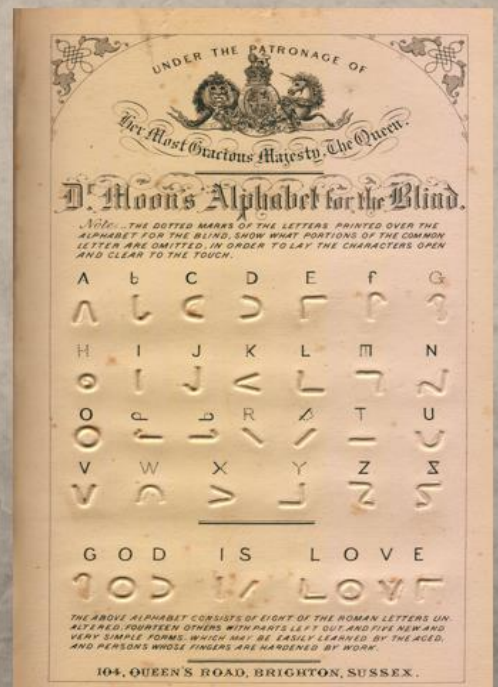 UNDER THE PATRONAGE OF
Her Most Gracious Majesty, The Queen.
Dr. Moon's Alphabet for the Blind.
Note... THE DOTTED MARKS OF THE LETTERS PRINTED OVER THE
ALPHABET FOR THE BLIND, SHOW WHAT PORTIONS OF THE COMMON
LETTER ARE OMITTED, IN ORDER TO LAY THE CHARACTERS OPEN
AND CLEAR TO THE TOUCH.
A b C D E f G
H I J K L m N
O P R T U
V W X Y Z
GOD IS LOVE
THE ABOVE ALPHABET CONSISTS OF EIGHT OF THE ROMAN LETTERS UN-
ALTERED, FOURTEEN OTHERS WITH PARTS LEFT OUT, AND FIVE NEW AND
VERY SIMPLE FORMS, WHICH MAY BE EASILY LEARNED BY THE AGED,
AND PERSONS WHOSE FINGERS ARE HARDENED BY WORK.
104, QUEEN'S ROAD, BRIGHTON, SUSSEX.